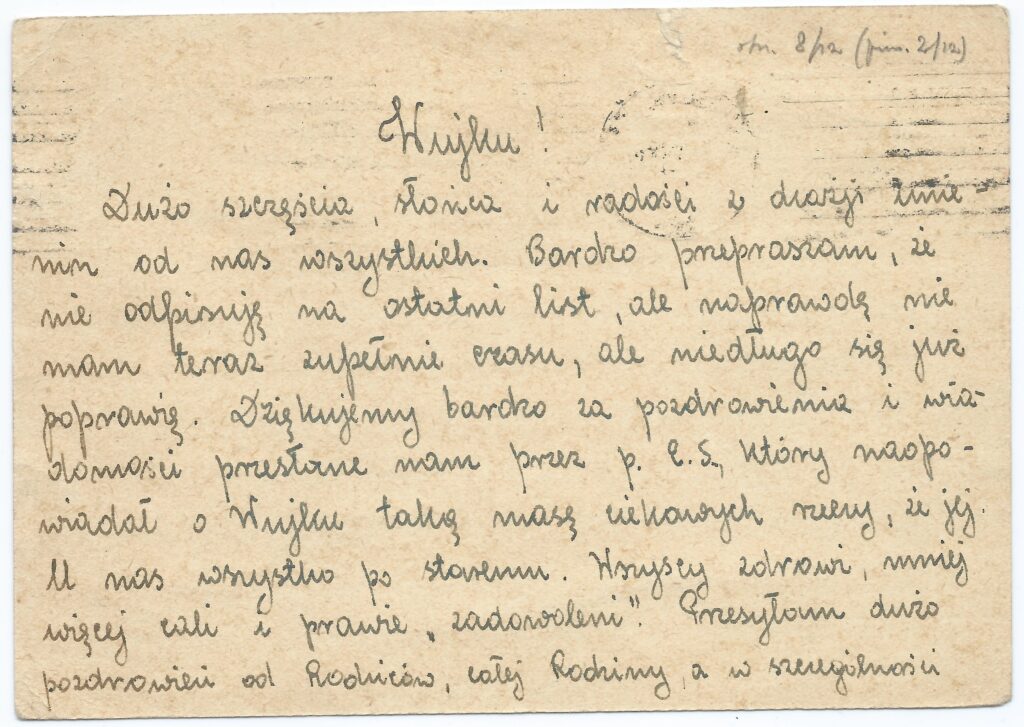 otrz. 8/12 (pism. 2/12)
Wujku!
Dużo szczęścia, słońca i radości z okazji imie-
nin od nas wszystkich. Bardzo przepraszam, że
nie odpisuję na ostatni list, ale naprawdę nie
mam teraz zupełnie czasu, ale niedługo się już
poprawię. Dziękujemy bardzo za pozdrowienia i wia-
domości przesłane nam przez p. E.S., który naopo-
wiadał o Wujku taką masę ciekawych rzeczy, że jej.
U nas wszystko po staremu. Wszyscy zdrowi, mniej
więcej cali i prawie „zadowoleni". Przesyłam dużo
pozdrowień od Rodziców, całej Rodziny, a w szczególności